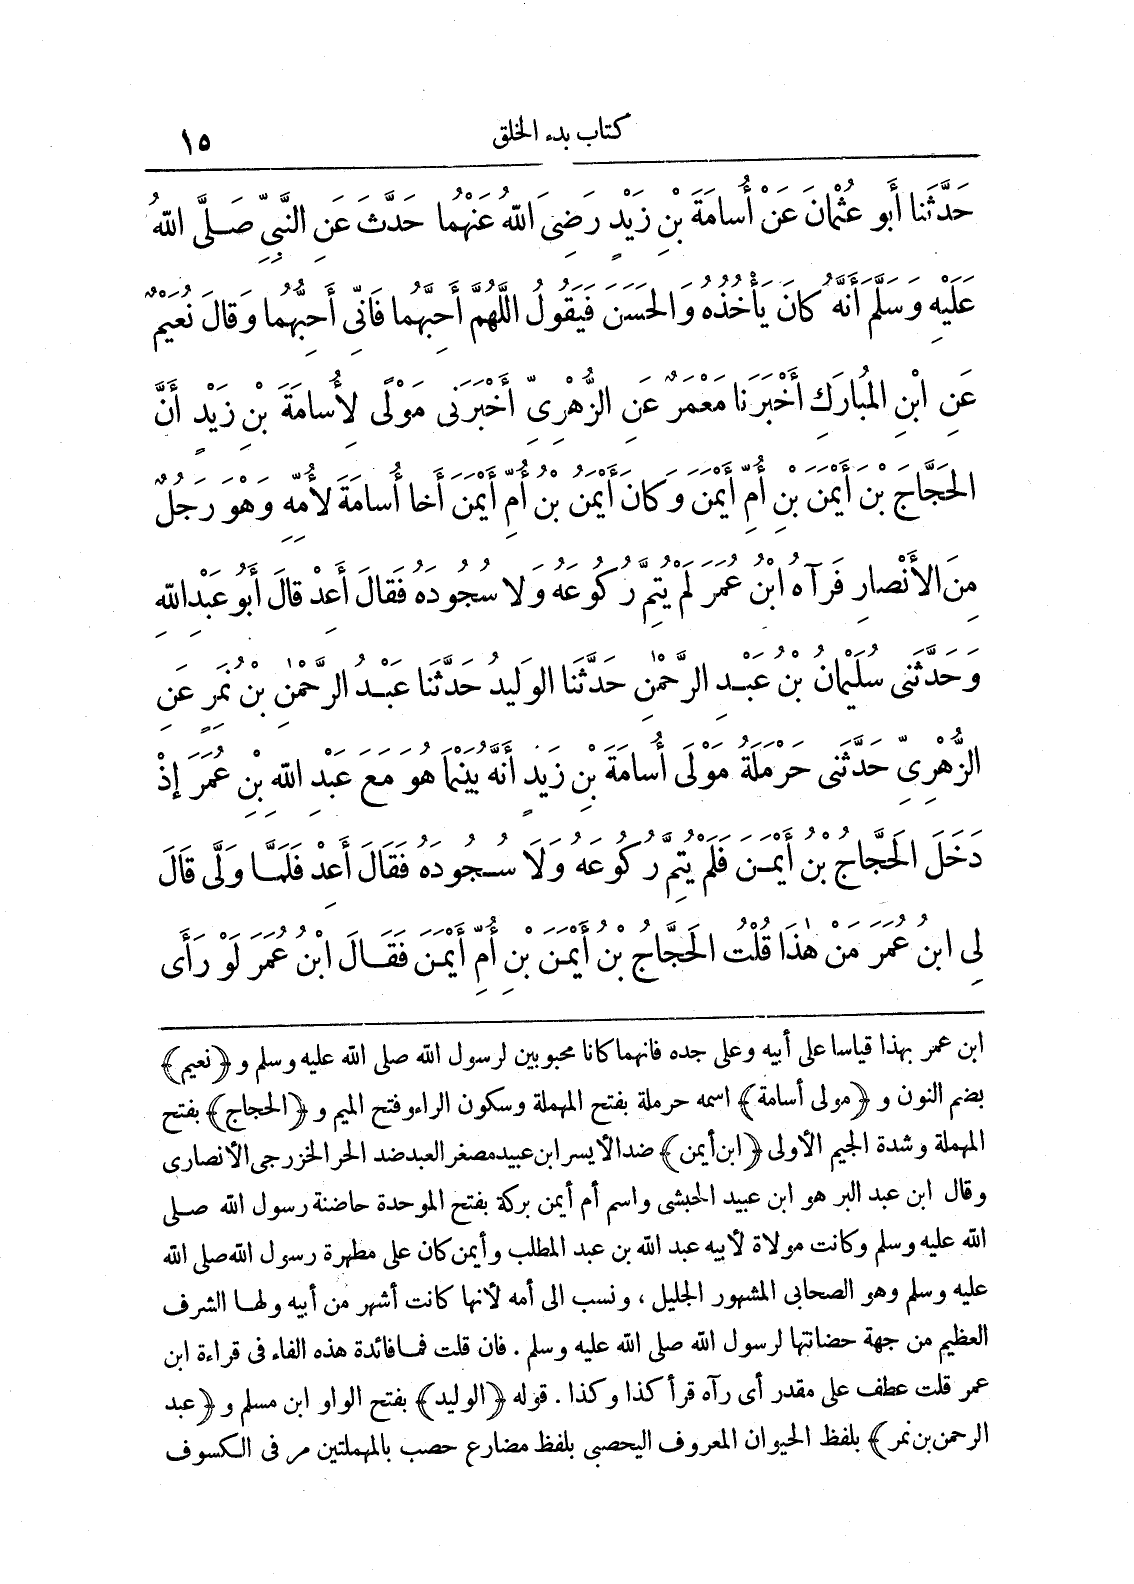 كتاب بدء الخلق
١٥
حَدَّثَنَا أَبو عُثْمَانَ عَنْ أُسامَةَ بْنِ زَيْدٍ رَضِىَ اللهُ عَنْهُما حَدَّثَ عَنِ النَّبِىِّ صَلَّى اللهُ
عَلَيْهِ وَسَلَّمَ أَنَّهُ كانَ يَأْخُذُهُ وَالحَسَنَ فَيَقُولُ اللَّهُمَّ أَحِبَّهُما فَانِّى أُحِبُّهُما وَقالَ نُعَيْمٌ
عَنِ ابْنِ المُبارَكِ أَخْبَرَنا مَعْمَرٌ عَنِ الزُّهْرِىِّ أَخْبَرَنى مَوْلًى لِأُسامَةَ بْنِ زَيْدٍ أَنَّ
الحَجَّاجَ بْنَ أَيْمَنَ بْنِ أُمِّ أَيْمَنَ وَكانَ أَيْمَنُ بْنُ أُمِّ أَيْمَنَ أَخا أُسامَةَ لِأُمِّهِ وَهْوَ رَجُلٌ
مِنَ الأَنْصارِ فَرَآهُ ابْنُ عُمَرَ لَمْ يُتِمَّ رُكُوعَهُ وَلا سُجُودَهُ فَقالَ أَعِدْ قالَ أَبُو عَبْدِ اللهِ
وَحَدَّثَنى سُلَيْمانُ بْنُ عَبْدِ الرَّحْمٰنِ حَدَّثَنا الوَلِيدُ حَدَّثَنا عَبْدُ الرَّحْمٰنِ بْنُ نَمِرٍ عَنِ
الزُّهْرِىِّ حَدَّثَنى حَرْمَلَةُ مَوْلَى أُسامَةَ بْنِ زَيْدٍ أَنَّهُ بَيْنَما هُوَ مَعَ عَبْدِ اللهِ بْنِ عُمَرَ إِذْ
دَخَلَ الحَجَّاجُ بْنُ أَيْمَنَ فَلَمْ يُتِمَّ رُكُوعَهُ وَلَا سُجُودَهُ فَقَالَ أَعِدْ فَلَمَّا وَلَّى قَالَ
لِى ابنُ عُمَرَ مَنْ هٰذَا قُلْتُ الحَجَّاجُ بْنُ أَيْمَنَ بْنِ أُمِّ أَيْمَنَ فَقَالَ ابْنُ عُمَرَ لَوْ رَأَى
ابن عمر بهذا قياسا على أبيه وعلى جده فانهما كانا محبوبين لرسول الله صلى الله عليه وسلم و ﴿نعيم﴾
بضم النون و ﴿مولى أسامة﴾ اسمه حرملة بفتح المهملة وسكون الراء وفتح الميم و ﴿الحجاج﴾ بفتح
المهملة وشدة الجيم الأولى ﴿ابن أيمن﴾ ضد الأيسر ابن عبيد مصغر العبد ضد الحر الخزرجى الأنصارى
وقال ابن عبد البر هو ابن عبيد الحبشى واسم أم أيمن بركة بفتح الموحدة حاضنة رسول الله صلى
الله عليه وسلم وكانت مولاة لأبيه عبد الله بن عبد المطلب وأيمن كان على مطهرة رسول الله صلى الله
عليه وسلم وهو الصحابى المشهور الجليل ، ونسب الى أمه لأنها كانت أشهر من أبيه ولها الشرف
العظيم من جهة حضانتها لرسول الله صلى الله عليه وسلم . فان قلت فما فائدة هذه الفاء فى قراءة ابن
عمر قلت عطف على مقدر أى رآه قرأ كذا وكذا . قوله ﴿الوليد﴾ بفتح الواو ابن مسلم و ﴿عبد
الرحمن بن نمر﴾ بلفظ الحيوان المعروف اليحصبى بلفظ مضارع حصب بالمهملتين مر فى الكسوف